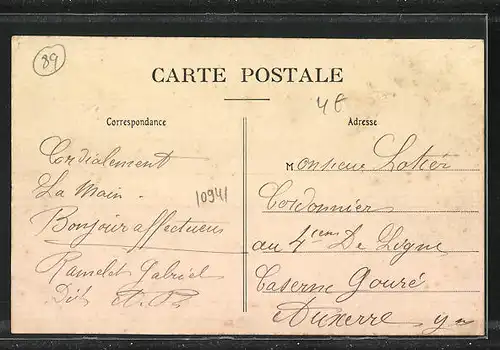 89
CARTE POSTALE
4€
Correspondance
Adresse
Cordialement
La Main.
Bonjour affectueux
Ramelet Gabriel
Dit
10941
Monsieur Lotier
Cordonnier
au 4ième De Ligne
Caserne Gouré
Auxerre